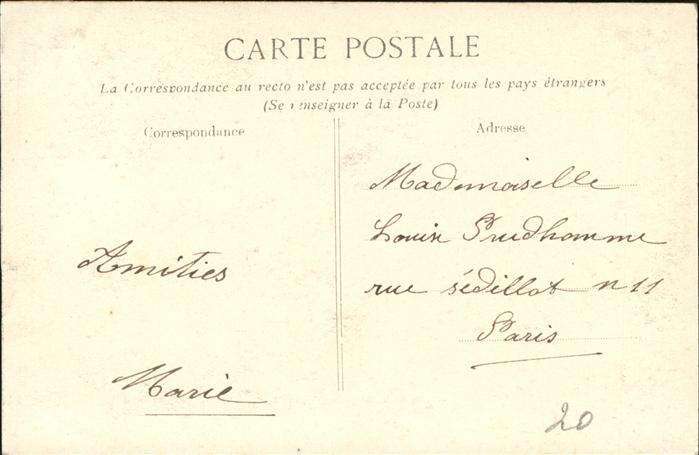 CARTE POSTALE
La Correspondance au recto n'est pas acceptée par tous les pays étrangers
(Se renseigner à la Poste)
Correspondance
Amitiés
Marie
Adresse
Mademoiselle
Louise Prudhomme
rue sédillot n 11
Paris
20